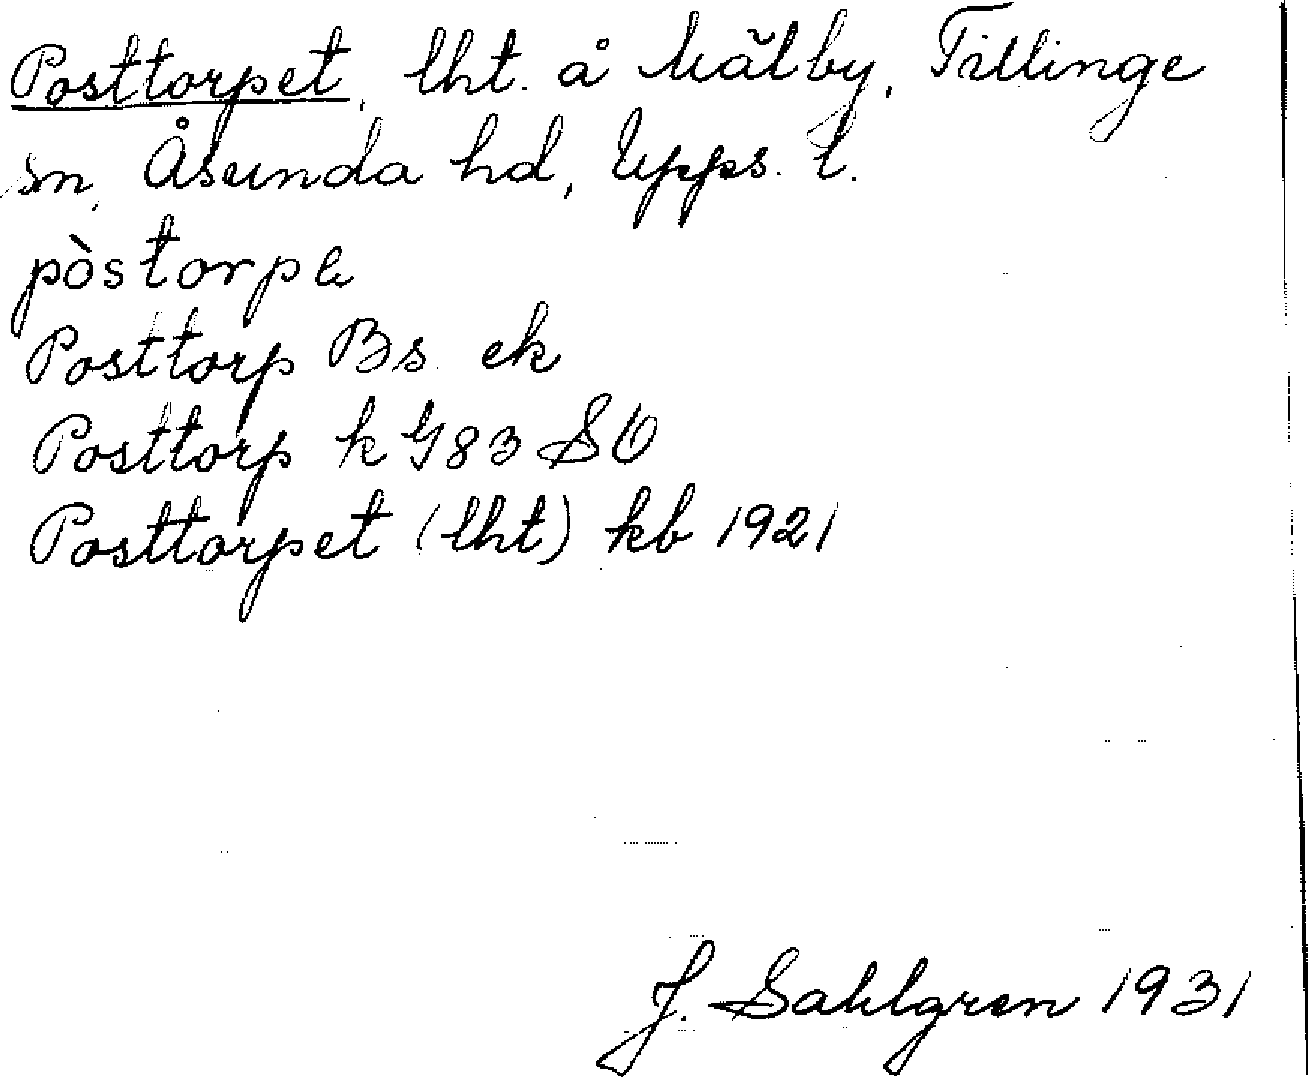 Posttorpet, lht. å Kälby, Tillinge
sn, Åsunda hd, Upps. l.
pòstorpe
Posttorp Bs. ek
Posttorp k G83 SO
Posttorpet (lht) kb 1921
J. Sahlgren 1931